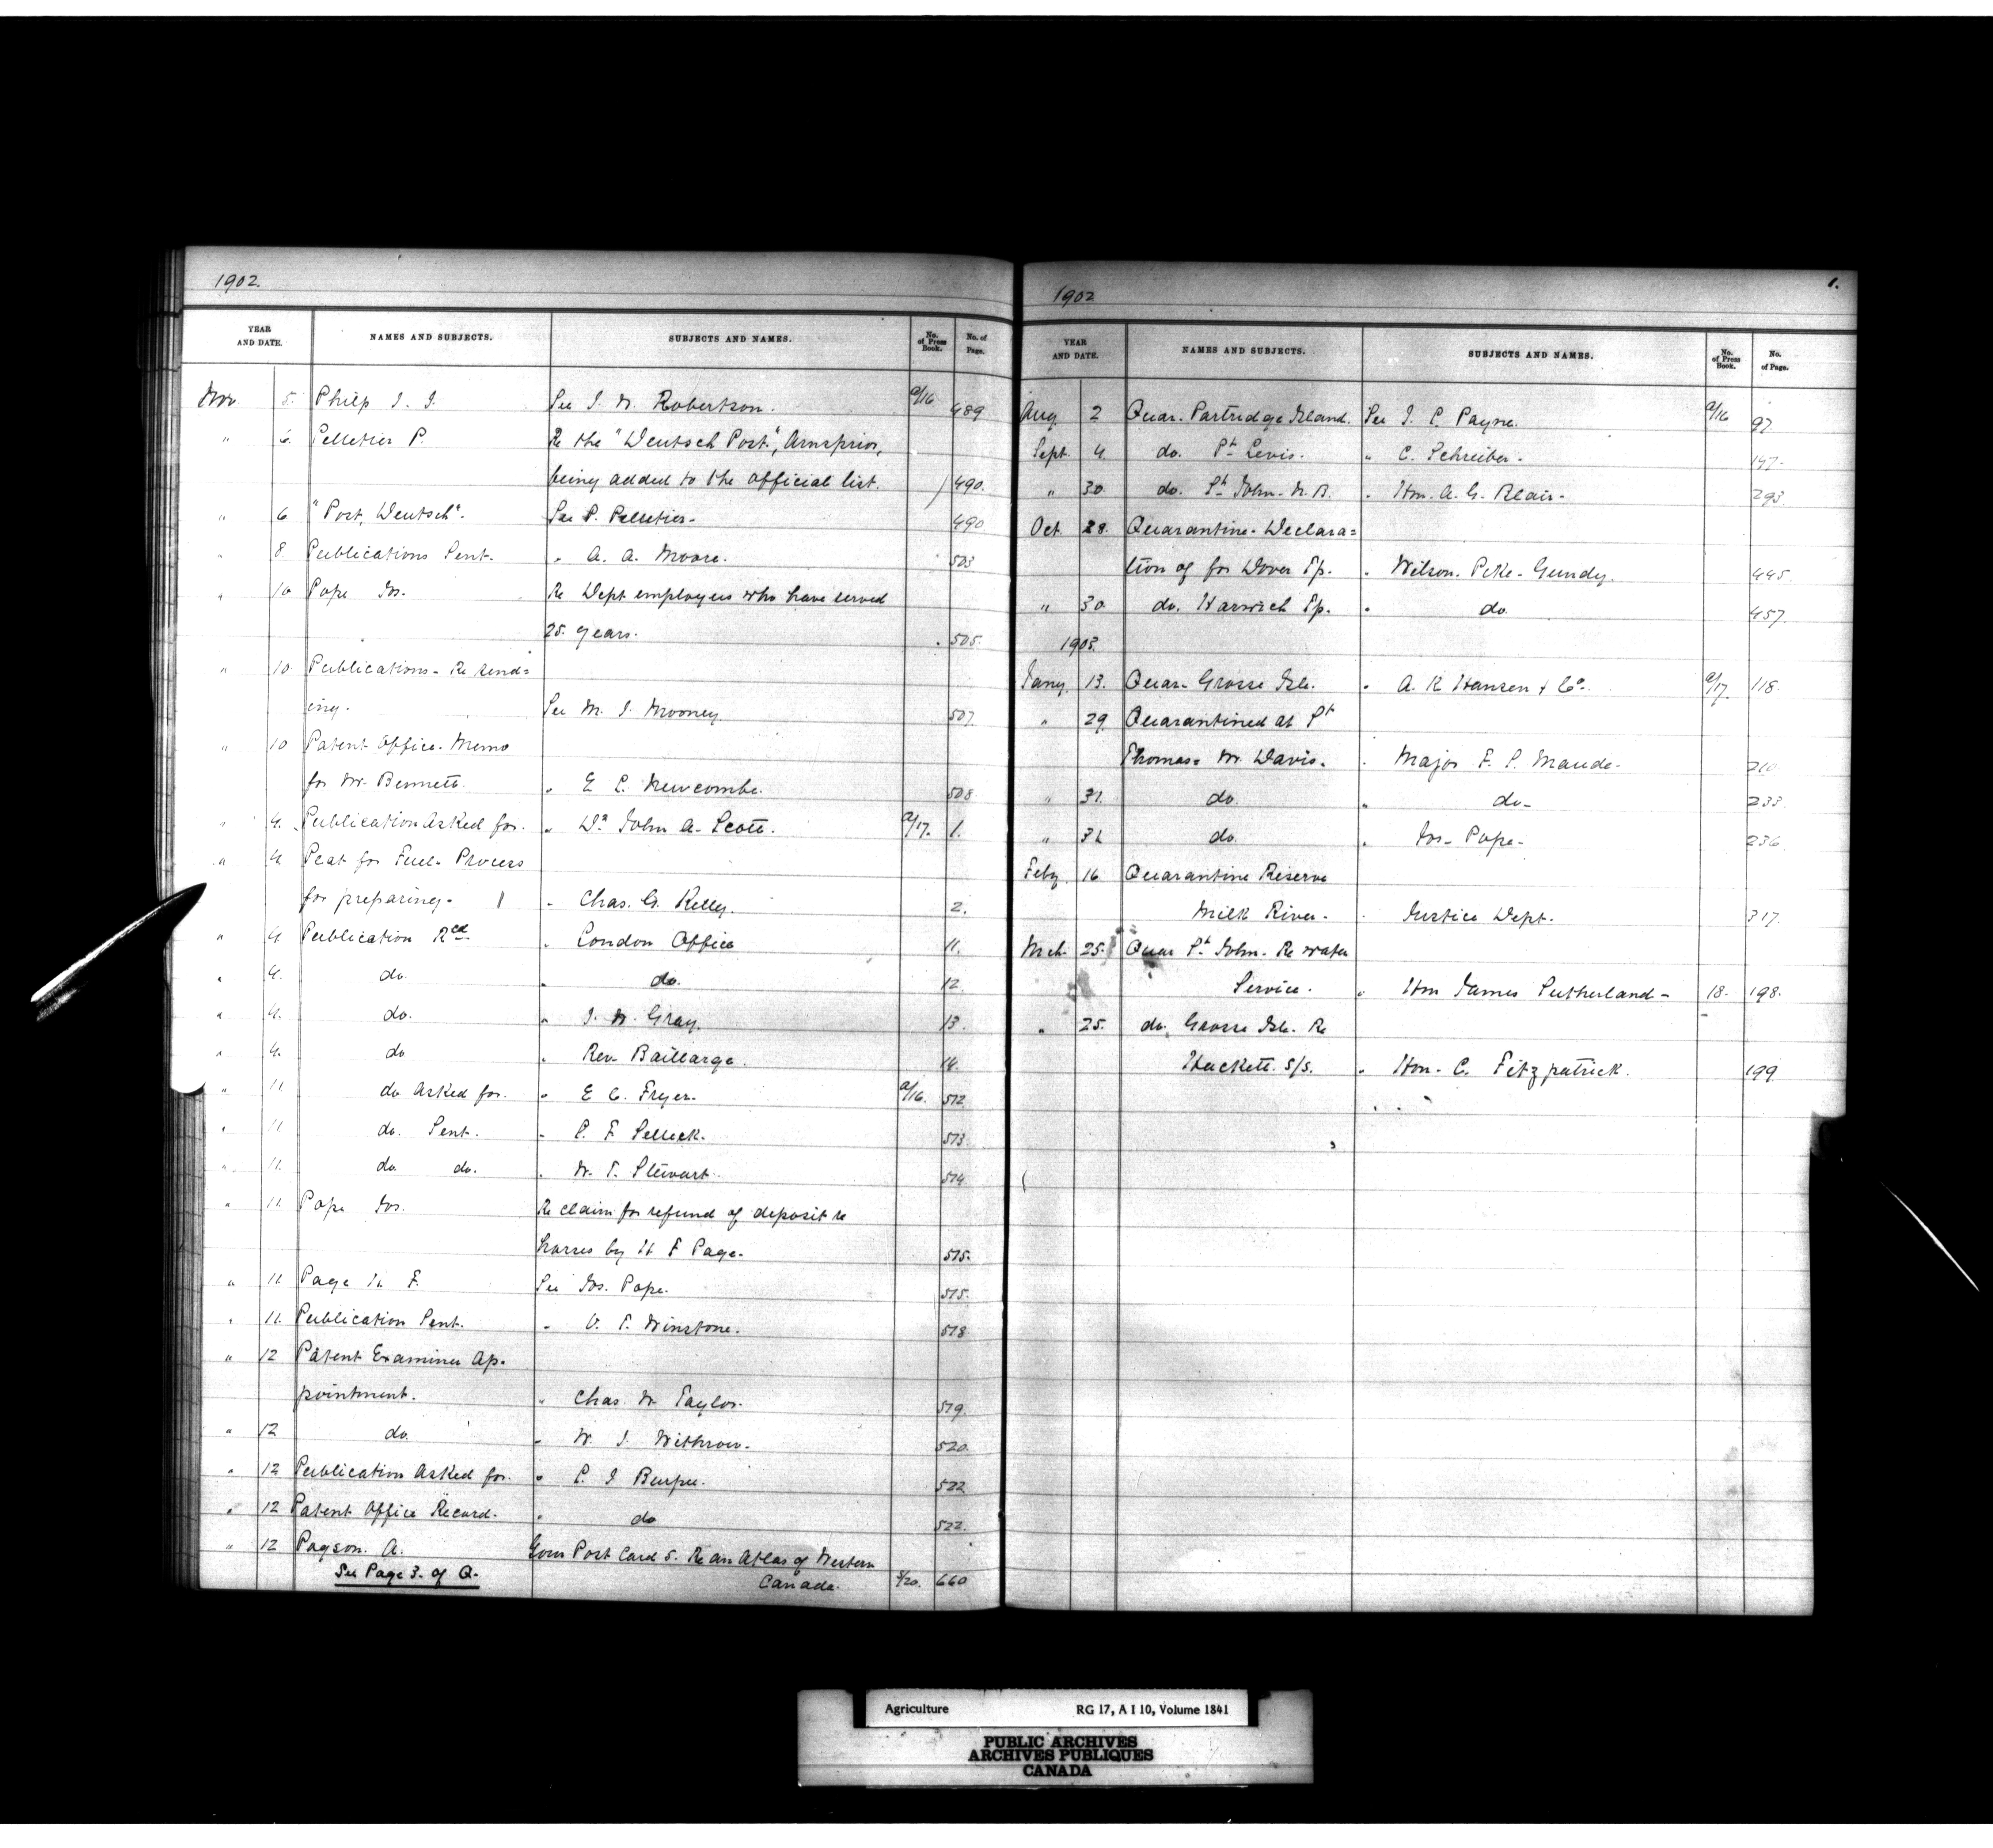 1902.
YEAR AND DATE. NAMES AND SUBJECTS. SUBJECTS AND NAMES. No. of Press Book. No. of Page.
Nov. 5. Philp J. J. See J. W. Robertson. a/16 489
" 6. Pelletier P. Re the "Deutsch Post", Arnprior,
being added to the official list. 490.
" 6 "Post, Deutsch". See P. Pelletier. 490
" 8 Publications Sent. " A. A. Moore. 503
" 10 Pope Jos. Re Dept employees who have served
25 years. 505.
" 10 Publications - Re send=
ing. See M. J. Mooney 507.
" 10 Patent Office. Memo
for Mr. Bennett. " E L. Newcombe. 508
" 4. Publication Asked for. " Dr John A. Scott. a/17. 1.
" 4 Peat for Fuel - Process
for preparing. " Chas. G. Kelly. 2.
" 4 Publication Rcd " London Office 11.
" 4. do. " do. 12.
" 4. do. " J. W. Gray. 13.
" 4. do " Rev. Baillarge. 14.
" 11 do Asked for. " E C. Fryer. a/16. 512
" 11 do. Sent. " P. F Selleck. 513
" 11. do do. " W. T. Stewart. 514
" 11. Pope Jos. Re claim for refund of deposit re
horses by H F Page. 515.
" 11. Page H. F. See Jos. Pope. 515.
" 11. Publication Sent. " V. T. Winstone. 518
" 12 Patent Examiner Ap-
pointment. " Chas. W Taylor. 519.
" 12 do. " W. J. Withrow. 520.
" 12 Publication Asked for. " L. J Burpee. 522
" 12 Patent Office Record. " do 522.
" 12 Payson. A. Govr Post Card S. Re an Atlas of Western
See Page 3. of Q. Canada. /20. 660
1902 1.
YEAR AND DATE. NAMES AND SUBJECTS. SUBJECTS AND NAMES. No. of Press Book. No. of Page.
Aug 2 Quar. Partridge Island. See J. L. Payne. a/16 97.
Sept. 4 do. Pt Levis. " C. Schreiber. 147.
" 30 do. St John. N. B. " Hon. A. G. Blair. 293
Oct 28. Quarantine - Declara=
tion of for Dover Tp. " Wilson. Pike - Gundy. 445.
" 30 do. Harwich Tp. " do. 457.
1903.
Jany 13. Quar. Grosse Isle. " A. R Hansen & Co. a/17. 118.
" 29 Quarantined at St
Thomas = W. Davis. " Major F. S. Maude. 210
" 31. do. " do. 233.
" 31 do. " Jos. Pope. 236
Feby. 16 Quarantine Reserve
Milk River. " Justice Dept. 317.
Mch. 25. Quar St John. Re water
Service. " Hon James Sutherland - 18. 198.
" 25. do. Grosse Isle. Re
Hackett. S/S. " Hon. C. Fitzpatrick. 199.
Agriculture RG 17, A I 10, Volume 1841
PUBLIC ARCHIVES
ARCHIVES PUBLIQUES
CANADA